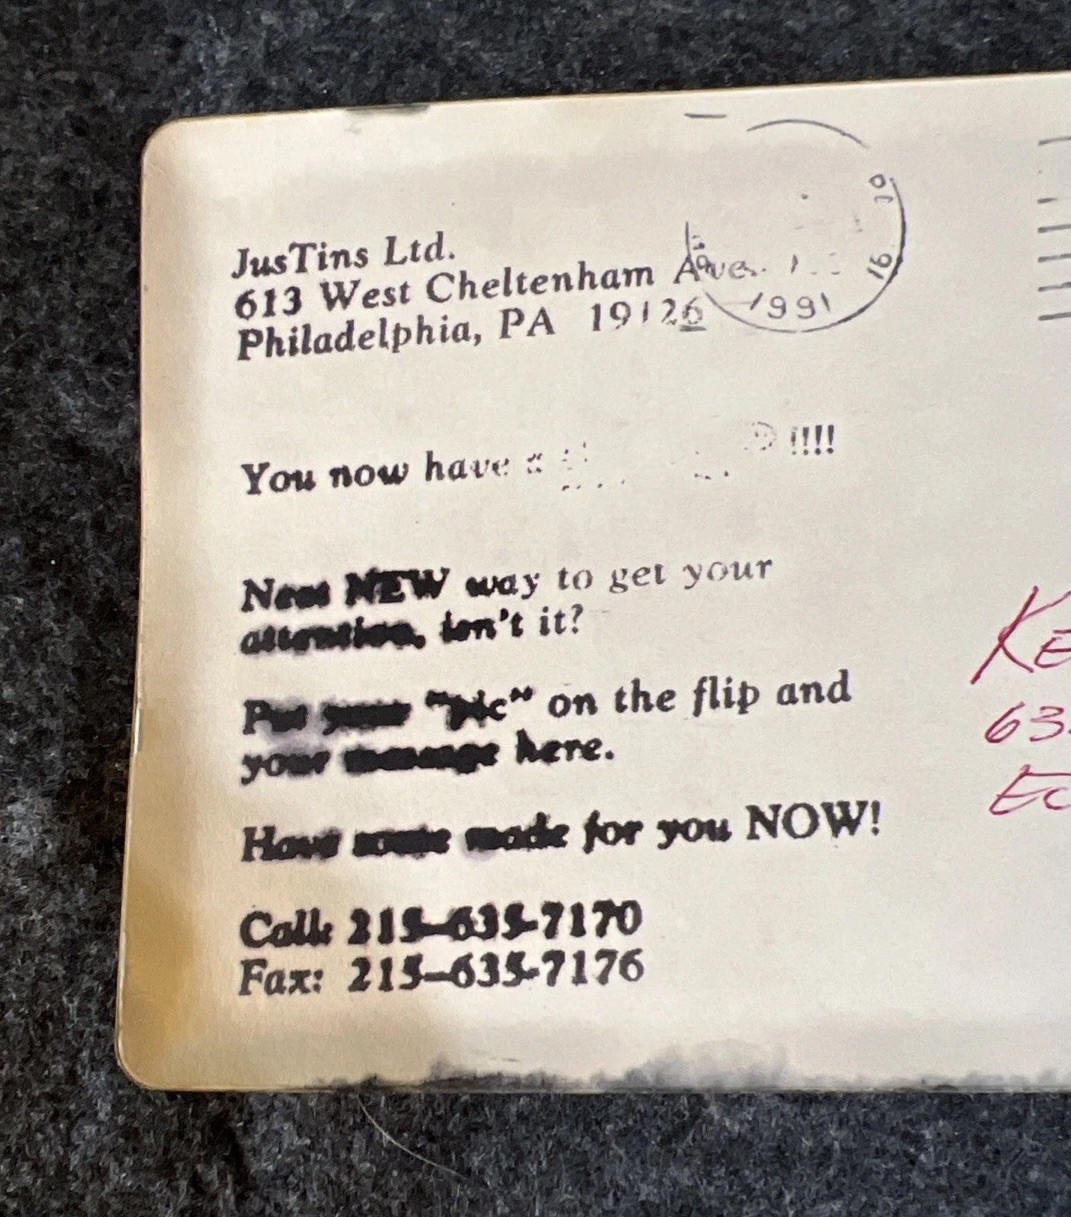 JusTins Ltd.
613 West Cheltenham Ave.
Philadelphia, PA 19126
1991
You now have a !!!!
Neat NEW way to get your
attention, isn't it?
Put your "pic" on the flip and
your message here.
Have some made for you NOW!
Call: 215-635-7170
Fax: 215-635-7176
KE
63
EC